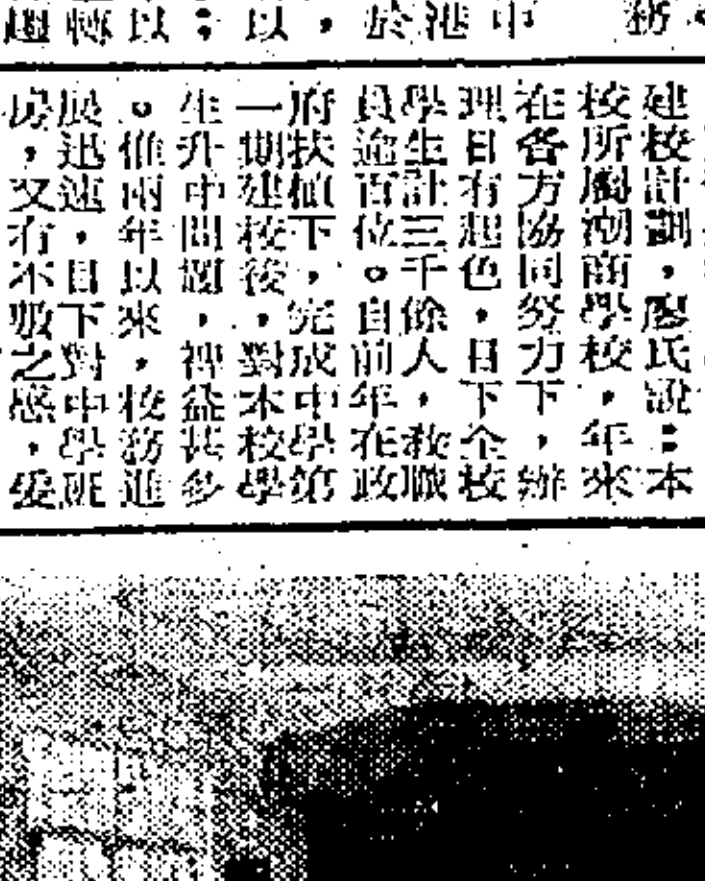 務
中
港
於
，
以
：
以
轉
趨
建校計劃，廖氏說：本
校所屬潮商學校，年來
在各方協同努力下，辦
理日有起色，目下全校
學生計三千餘人，教職
員逾百位。自前年在政
府扶植下，完成中學第
一期建校後，對本校學
生升中問題，裨益甚多
。惟兩年以來，校務進
展迅速，目下對中學班
房，又有不敷之感，爰